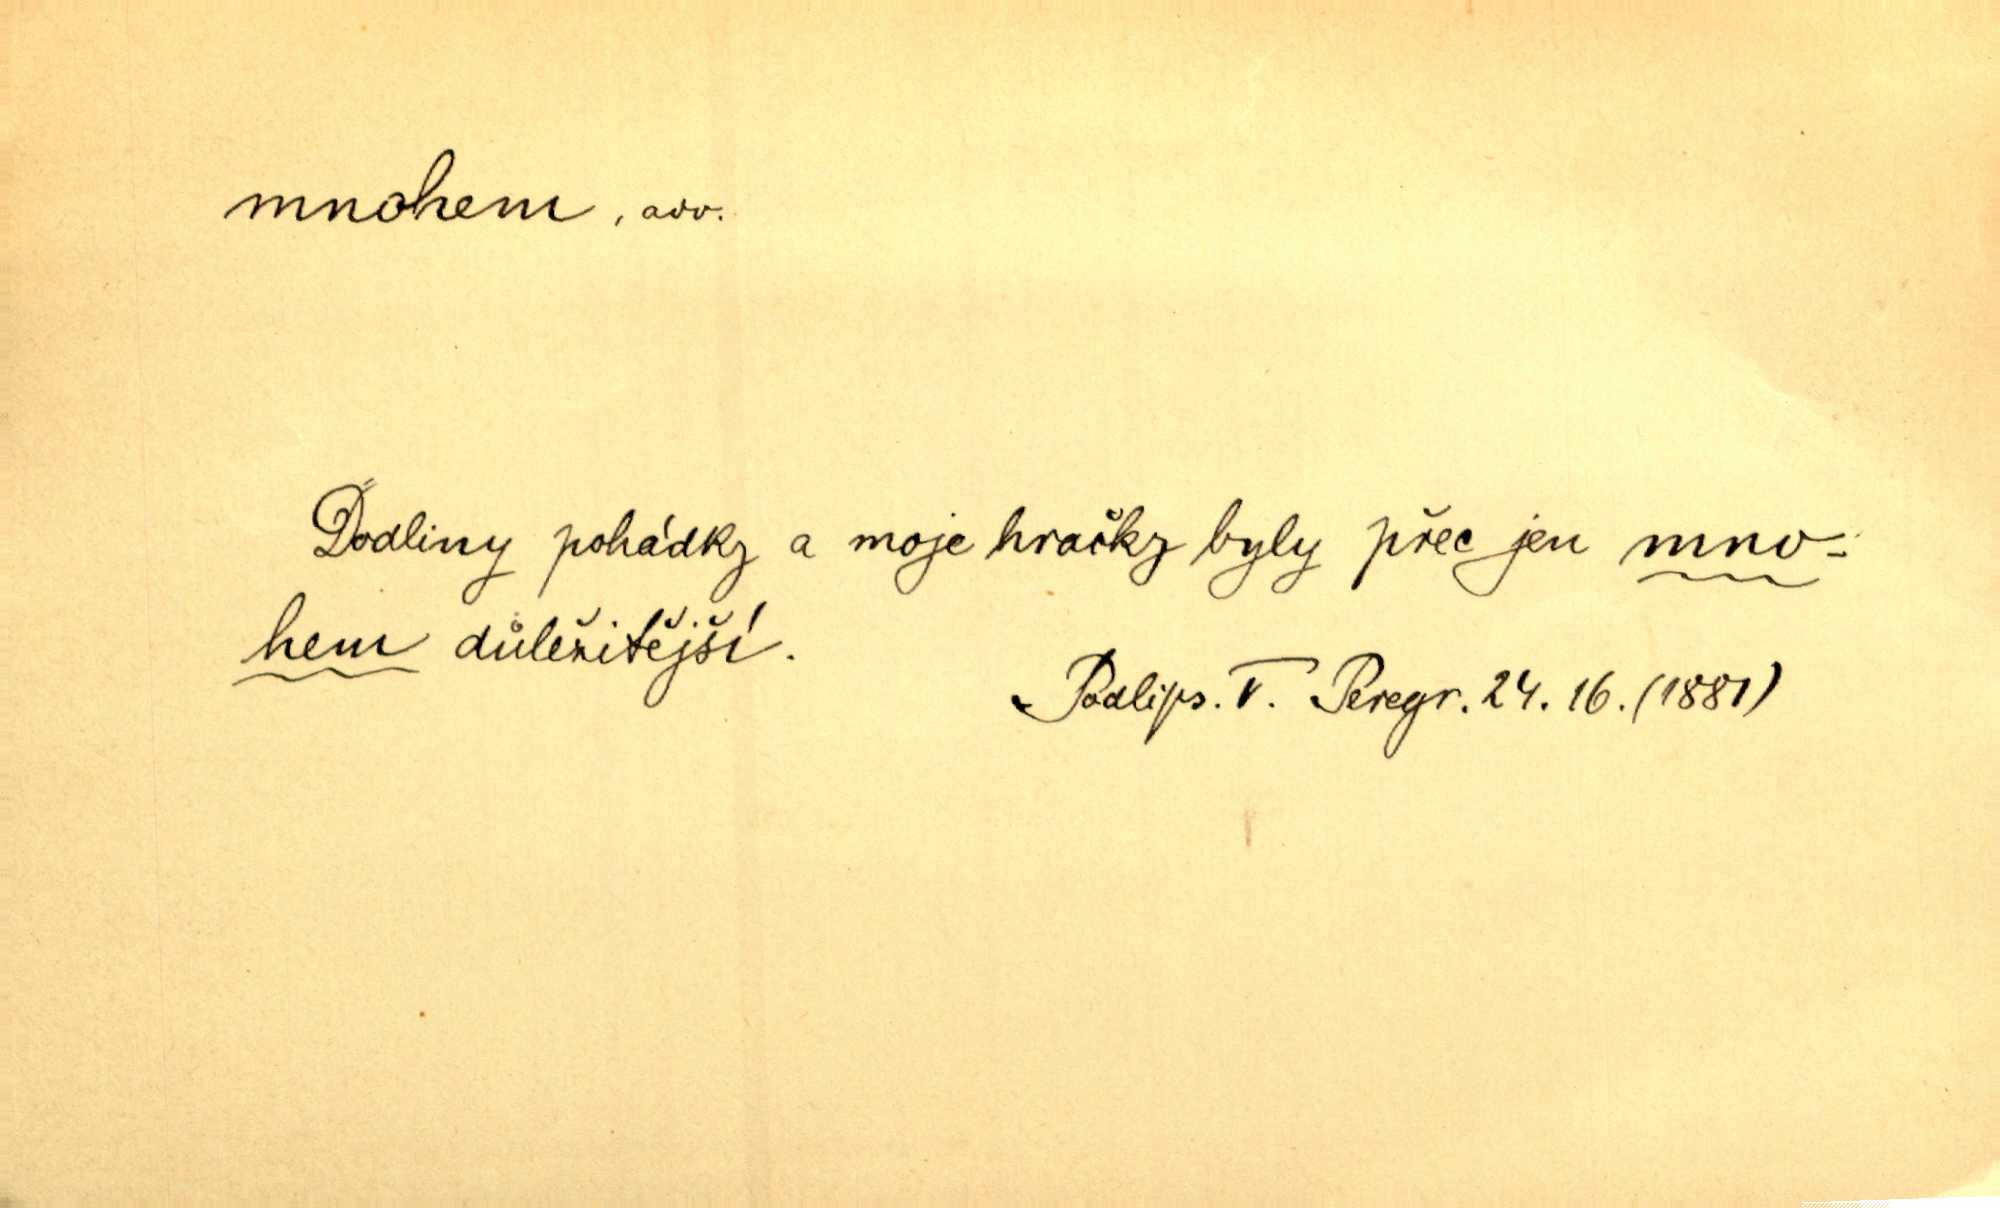 mnohem, adv.
Dodliny pohádky a moje hračky byly přec jen mno-
hem důležitější.
Podlips. V. Peregr. 24. 16. (1881)